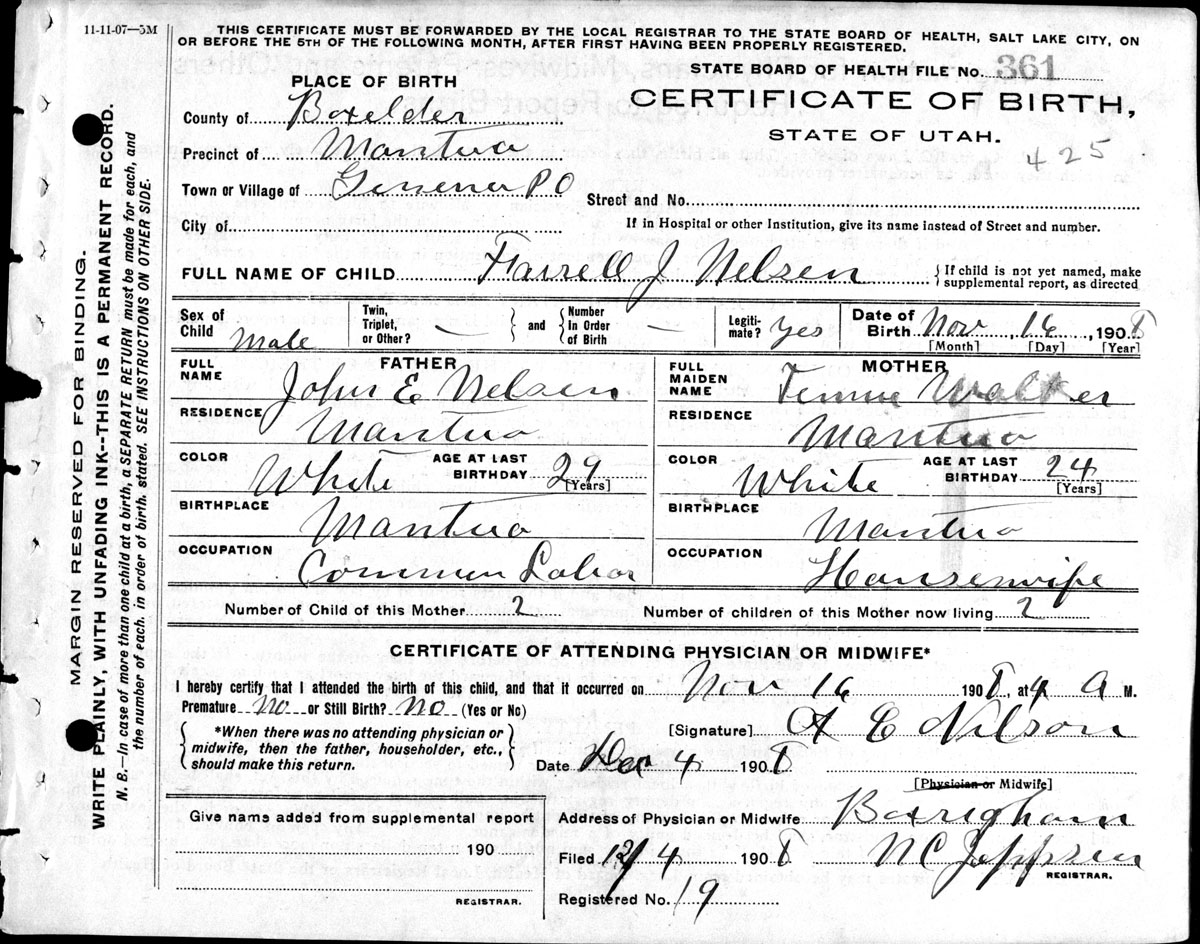 11-11-07—5M
THIS CERTIFICATE MUST BE FORWARDED BY THE LOCAL REGISTRAR TO THE STATE BOARD OF HEALTH, SALT LAKE CITY, ON
OR BEFORE THE 5TH OF THE FOLLOWING MONTH, AFTER FIRST HAVING BEEN PROPERLY REGISTERED.
PLACE OF BIRTH
STATE BOARD OF HEALTH FILE No. 361
County of Boxelder
CERTIFICATE OF BIRTH,
STATE OF UTAH.
Precinct of Mantua
425
Town or Village of P O
Street and No.
City of
If in Hospital or other Institution, give its name instead of Street and number.
FULL NAME OF CHILD Farrell J Nelsen {If child is not yet named, make
supplemental report, as directed
Sex of Child Male
Twin, Triplet, or Other? —
and
Number In Order of Birth —
Legiti-mate? Yes
Date of Birth Nov, 16, 1908
[Month] [Day] [Year]
FATHER
FULL NAME John E Nelsen
RESIDENCE Mantua
COLOR White AGE AT LAST BIRTHDAY 29 [Years]
BIRTHPLACE Mantua
OCCUPATION Common Labor
MOTHER
FULL MAIDEN NAME Walker
RESIDENCE Mantua
COLOR White AGE AT LAST BIRTHDAY 24 [Years]
BIRTHPLACE Mantua
OCCUPATION Housewife
Number of Child of this Mother 2 Number of children of this Mother now living 2
CERTIFICATE OF ATTENDING PHYSICIAN OR MIDWIFE*
I hereby certify that I attended the birth of this child, and that it occurred on Nov 16 1908, at 4 A M.
Premature no or Still Birth? no (Yes or No)
[Signature] A E Nilson
{*When there was no attending physician or
midwife, then the father, householder, etc.,
should make this return.}
Date Dec 4 1908
[Physician or Midwife]
Give name added from supplemental report
190
REGISTRAR.
Address of Physician or Midwife
Filed 12/4 1908 N C Jeppsen
REGISTRAR.
Registered No. 19
MARGIN RESERVED FOR BINDING.
WRITE PLAINLY, WITH UNFADING INK--THIS IS A PERMANENT RECORD.
N. B.—In case of more than one child at a birth, a SEPARATE RETURN must be made for each, and
the number of each, in order of birth, stated. SEE INSTRUCTIONS ON OTHER SIDE.